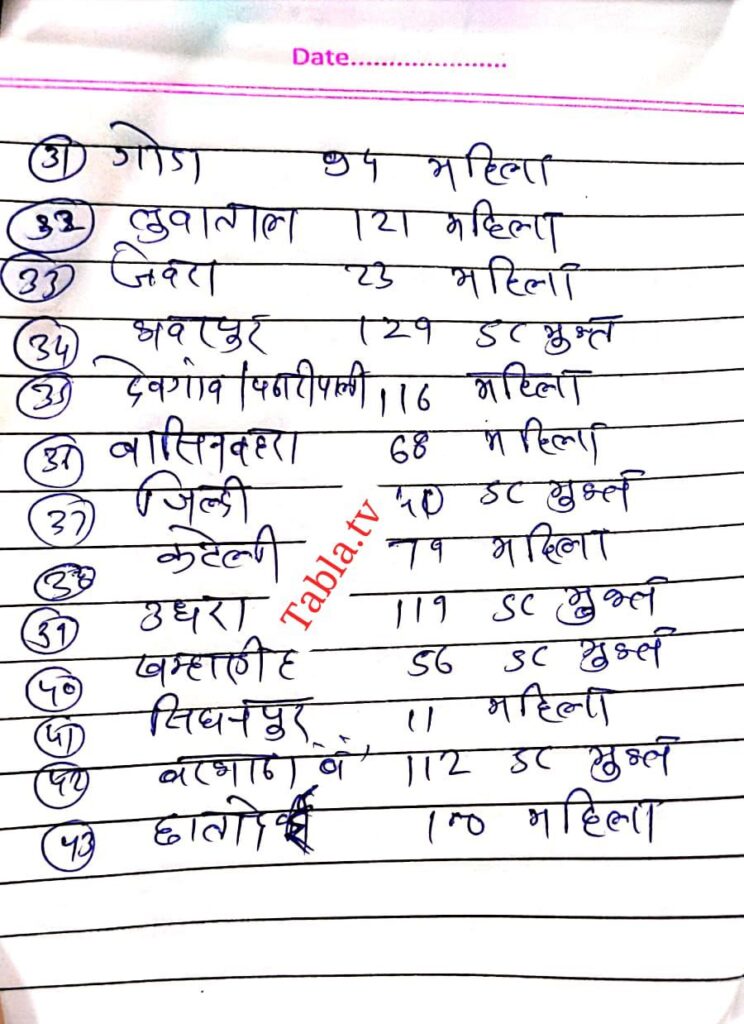 Date....................
31 गोडा 94 महिला
32 लुवाताल 121 महिला
33 जेवरा 23 महिला
34 भवरपुर 129 SC मुक्त
35 देवगांव / पनारीपाली 116 महिला
36 बासिनबहरा 68 महिला
37 जिल्दी SC मुक्त
38 कटेली 79 महिला
39 उधरा 119 SC मुक्त
40 खम्हारडीह 56 SC मुक्त
41 सिंघनपुर 11 महिला
42 112 SC मुक्त
43 महिला
Tabla.tv